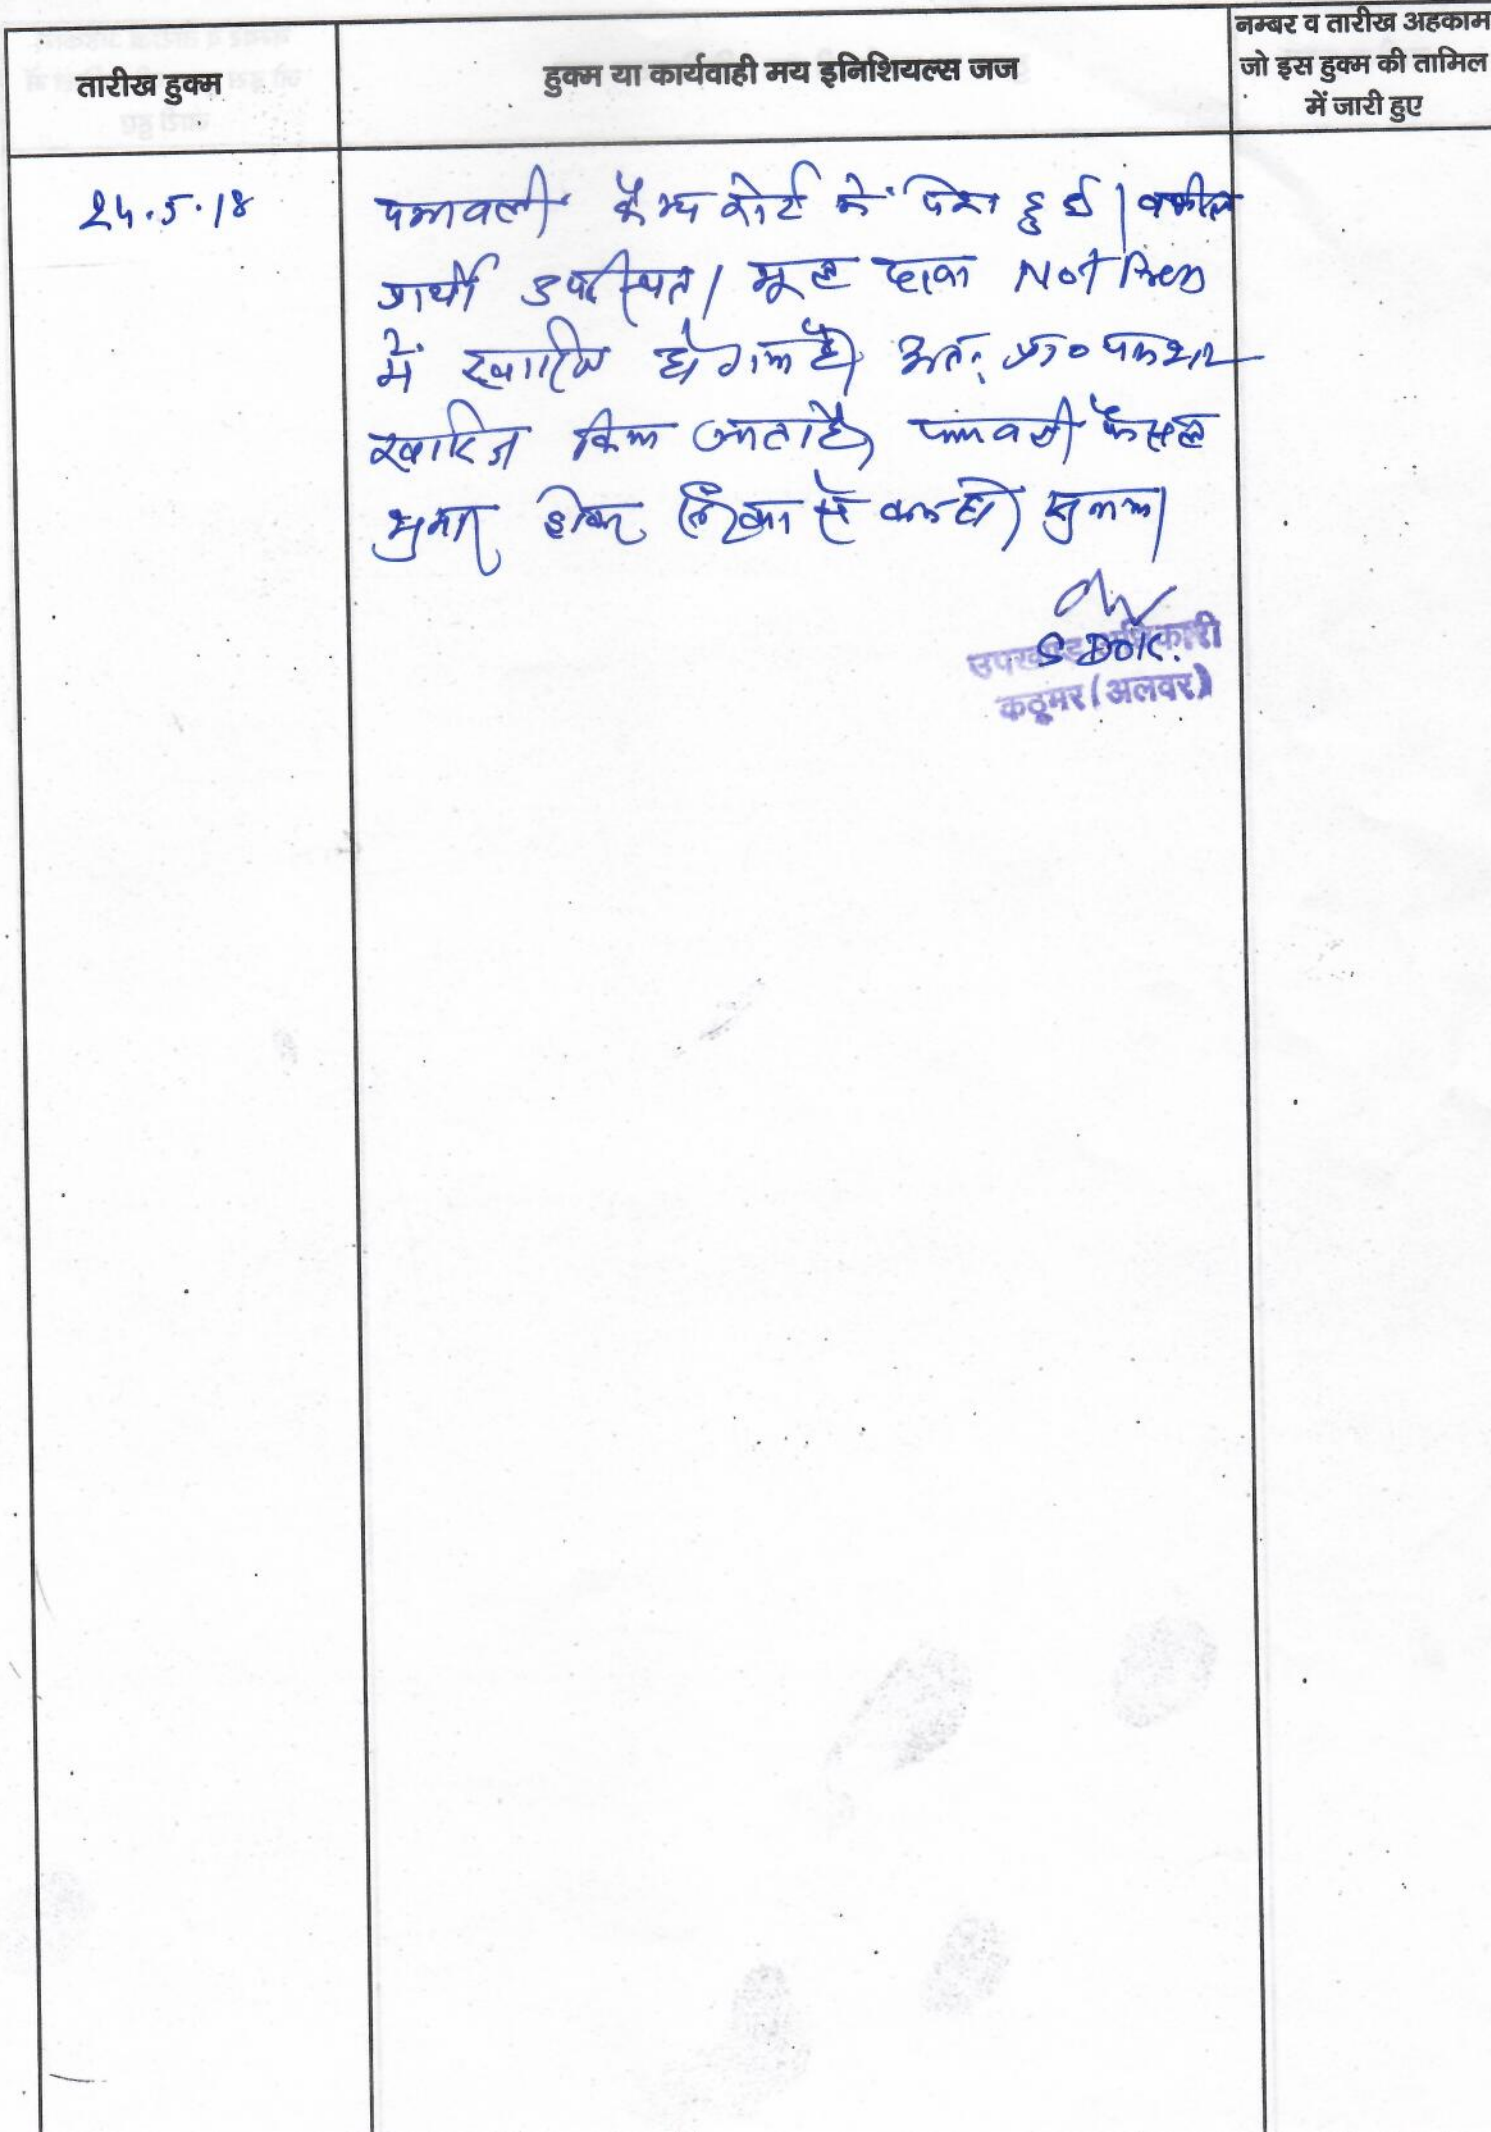 तारीख हुक्म
हुक्म या कार्यवाही मय इनिशियल्स जज
नम्बर व तारीख अहकाम
जो इस हुक्म की तामिल
में जारी हुए
24.5.18
पत्रावली कैम्प कोर्ट में पेश हुई। वकील
प्रार्थी उपस्थित। मूल दावा Not Press
में खारिज हो गया है। अतः प्रा०
खारिज किया जाता है। पत्रावली फैसल
शुमार होकर से कम हो।
SDO K.
उपखण्ड अधिकारी
कठूमर (अलवर)